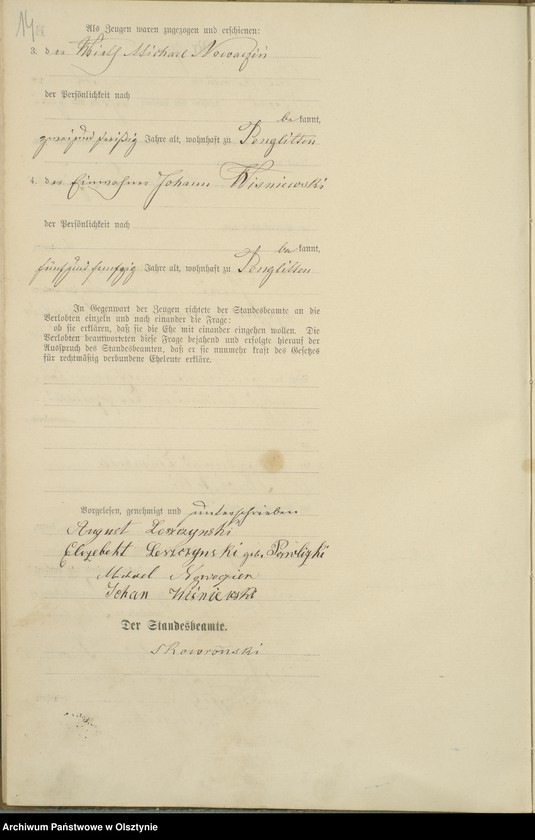 14
Als Zeugen waren zugezogen und erschienen:
3. der Wirth Michael Nowoczin
der Persönlichkeit nach
be kannt,
zwei und dreißig Jahre alt, wohnhaft zu Penglitten
4. der Einwohner Johann Wisniewski
der Persönlichkeit nach
be kannt,
fünf und fünfzig Jahre alt, wohnhaft zu Penglitten
In Gegenwart der Zeugen richtete der Standesbeamte an die
Verlobten einzeln und nach einander die Frage:
ob sie erklären, daß sie die Ehe mit einander eingehen wollen. Die
Verlobten beantworteten diese Frage bejahend und erfolgte hierauf der
Ausspruch des Standesbeamten, daß er sie nunmehr kraft des Gesetzes
für rechtmäßig verbundene Eheleute erkläre.
Vorgelesen, genehmigt und unterschrieben
August Leszczynski
Elisabeht Leszczynski geb.
Michael
Johan Wisniewski
Der Standesbeamte.
Skowronski
Archiwum Państwowe w Olsztynie